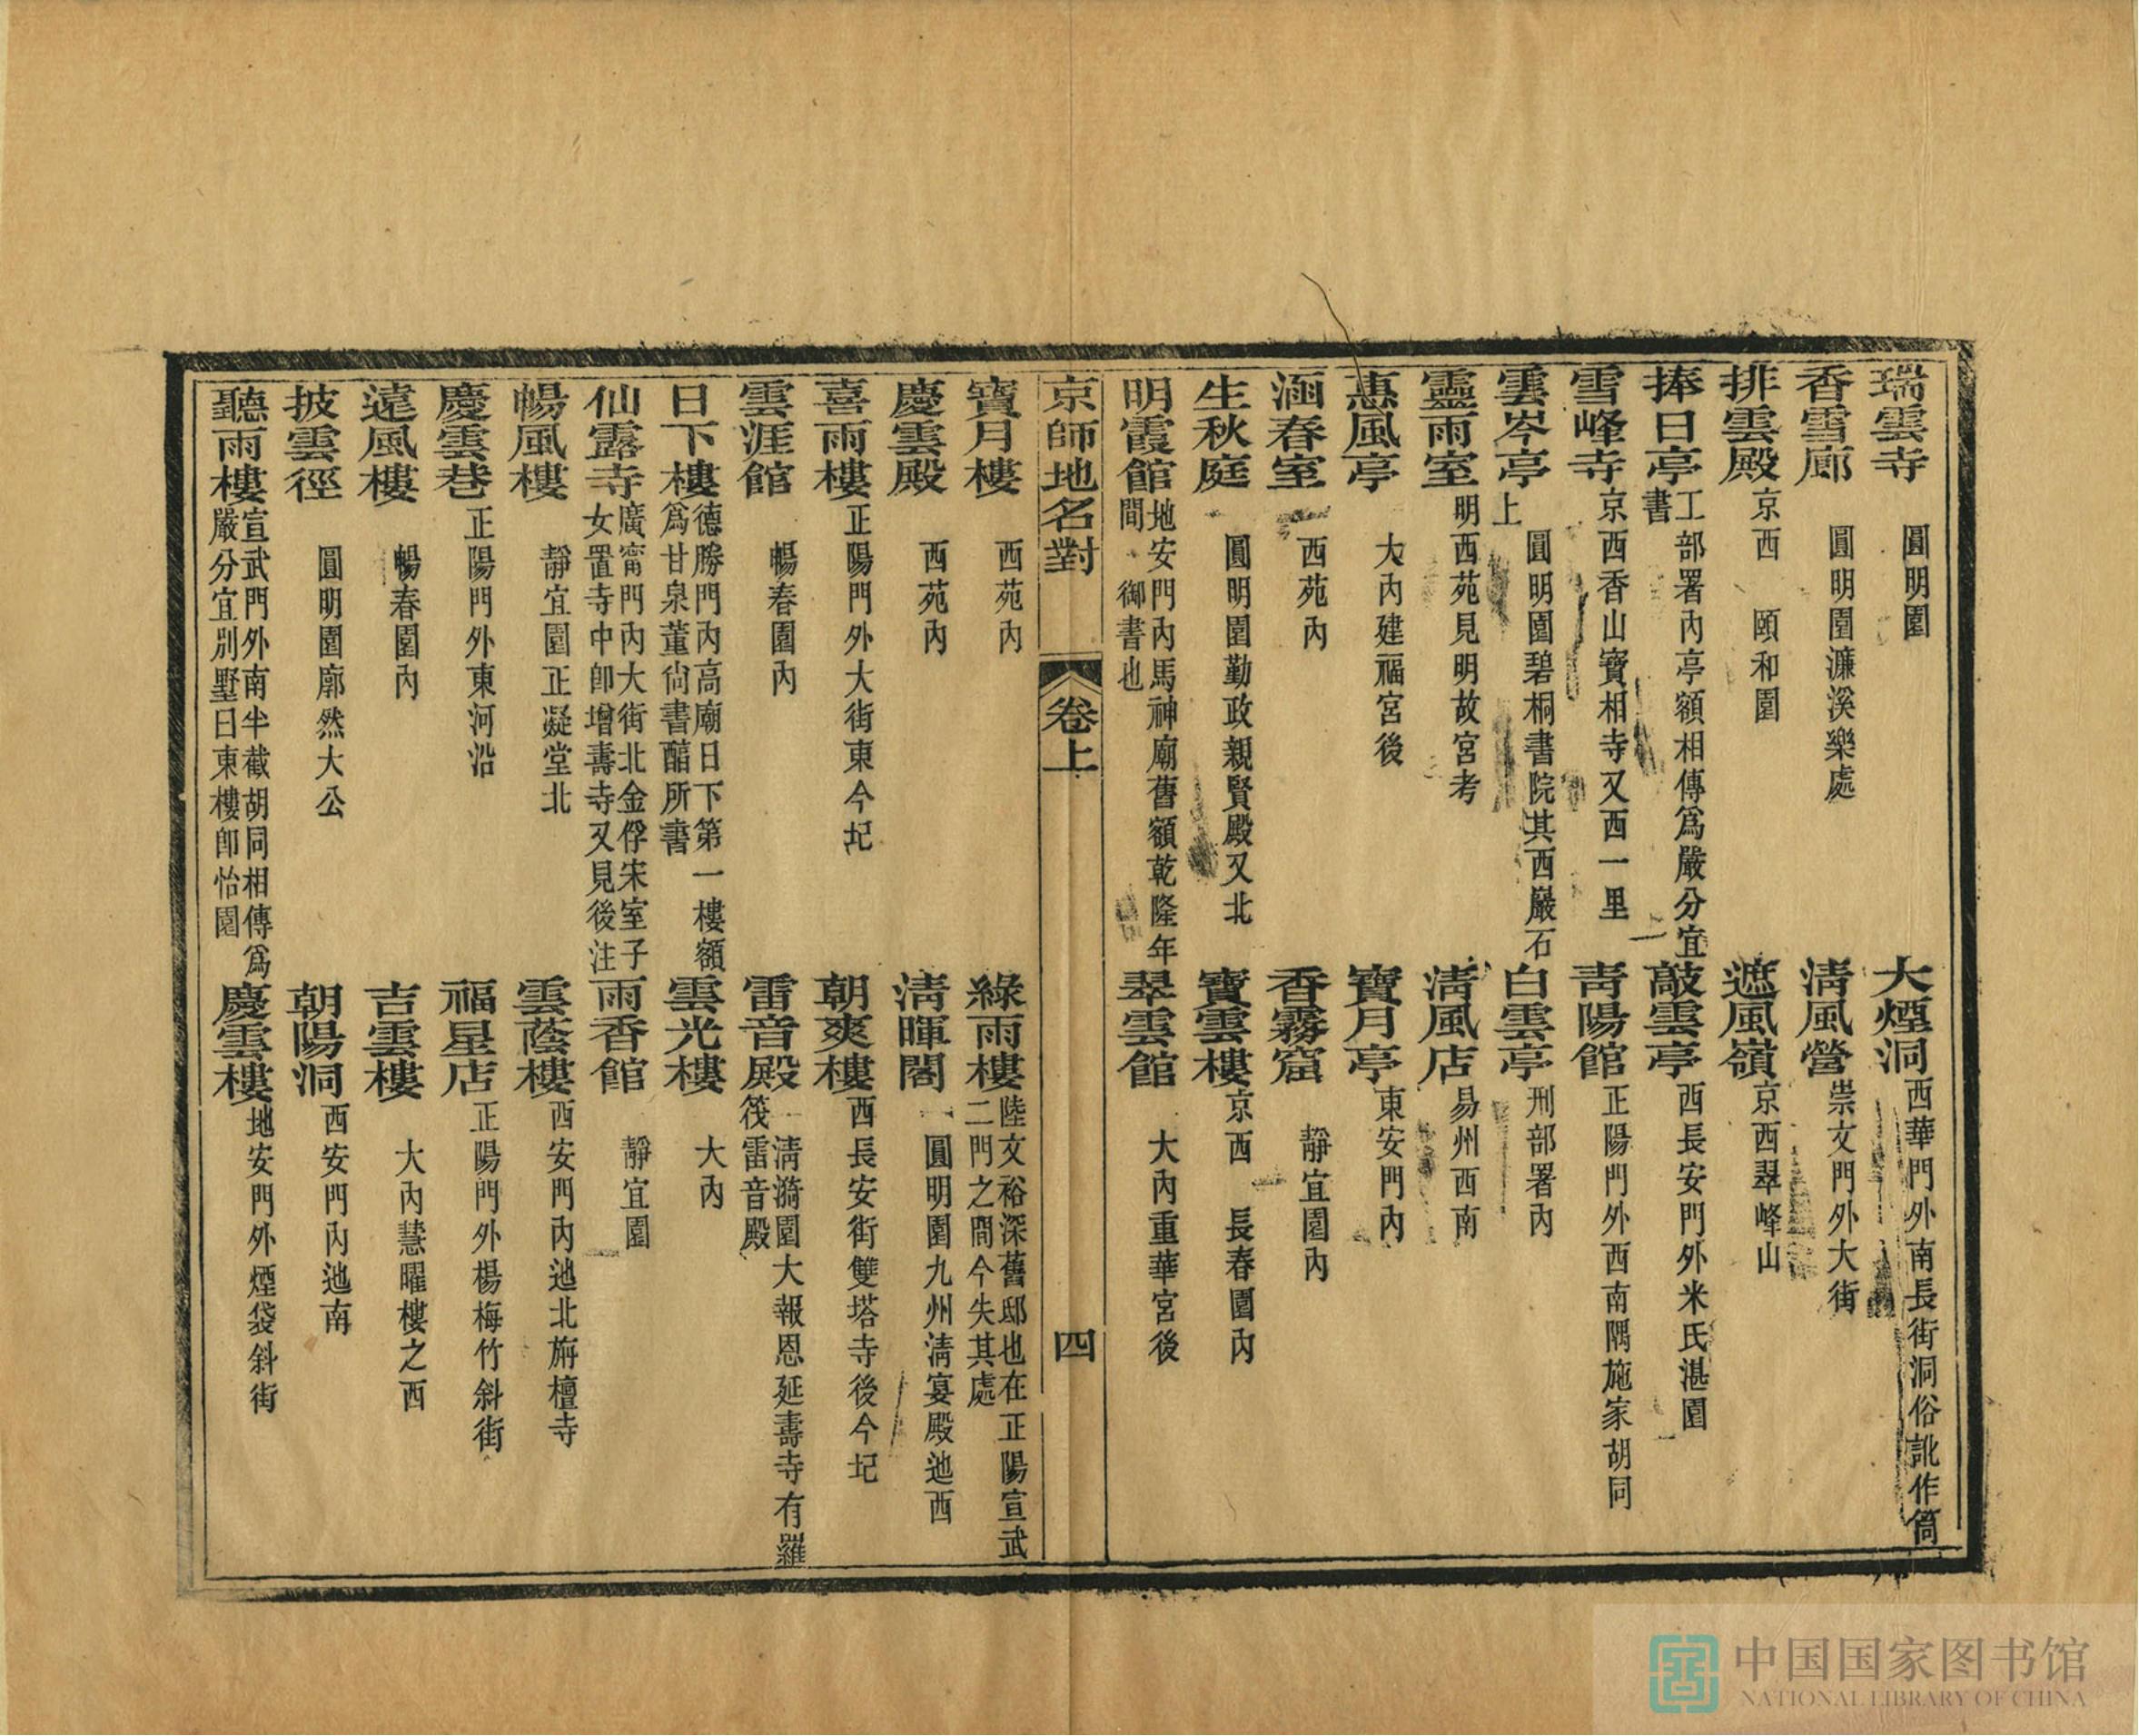 瑞雲寺 圓明園 大煙洞 西華門外南長街洞俗訛作筒
香雪廊 圓明園濂溪樂處 淸風營 崇文門外大街
排雲殿 京西 頤和園 遮風嶺 京西翠峰山
捧日亭 工部署內亭額相傳爲嚴分宜書 敲雲亭 西長安門外米氏湛園
雪峰寺 京西香山寶相寺又西一里 靑陽館 正陽門外西南隅施家胡同
雲岑亭 圓明園碧桐書院其西巖石上 白雲亭 刑部署內
靈雨室 明西苑見明故宮考 淸風店 易州西南
惠風亭 大內建福宮後 寶月亭 東安門內
涵春室 西苑內 香霧窟 靜宜園內
生秋庭 圓明園勤政親賢殿又北 寶雲樓 京西 長春園內
明霞館 地安門內馬神廟舊額乾隆年間 御書也 翠雲館 大內重華宮後
京師地名對 卷上 四
寶月樓 西苑內 綠雨樓 陸文裕深舊邸也在正陽宣武二門之間今失其處
慶雲殿 西苑內 淸暉閣 圓明園九州淸宴殿池西
喜雨樓 正陽門外大街東今圮 朝爽樓 西長安街雙塔寺後今圮
雲涯館 暢春園內 雷音殿 淸漪園大報恩延壽寺有羅筏雷音殿
日下樓 德勝門內高廟日下第一樓額爲甘泉董尙書醕所書 雲光樓 大內
仙露寺 廣甯門內大街北金俘宋室子女置寺中卽增壽寺又見後注 雨香館 靜宜園
暢風樓 靜宜園正凝堂北 雲蔭樓 西安門內池北旃檀寺
慶雲巷 正陽門外東河沿 福星店 正陽門外楊梅竹斜街
遠風樓 暢春園內 吉雲樓 大內慧曜樓之西
披雲徑 圓明園廓然大公 朝陽洞 西安門內池南
聽雨樓 宣武門外南半截胡同相傳爲嚴分宜別墅曰東樓卽怡園 慶雲樓 地安門外煙袋斜街
中国国家图书馆
NATIONAL LIBRARY OF CHINA